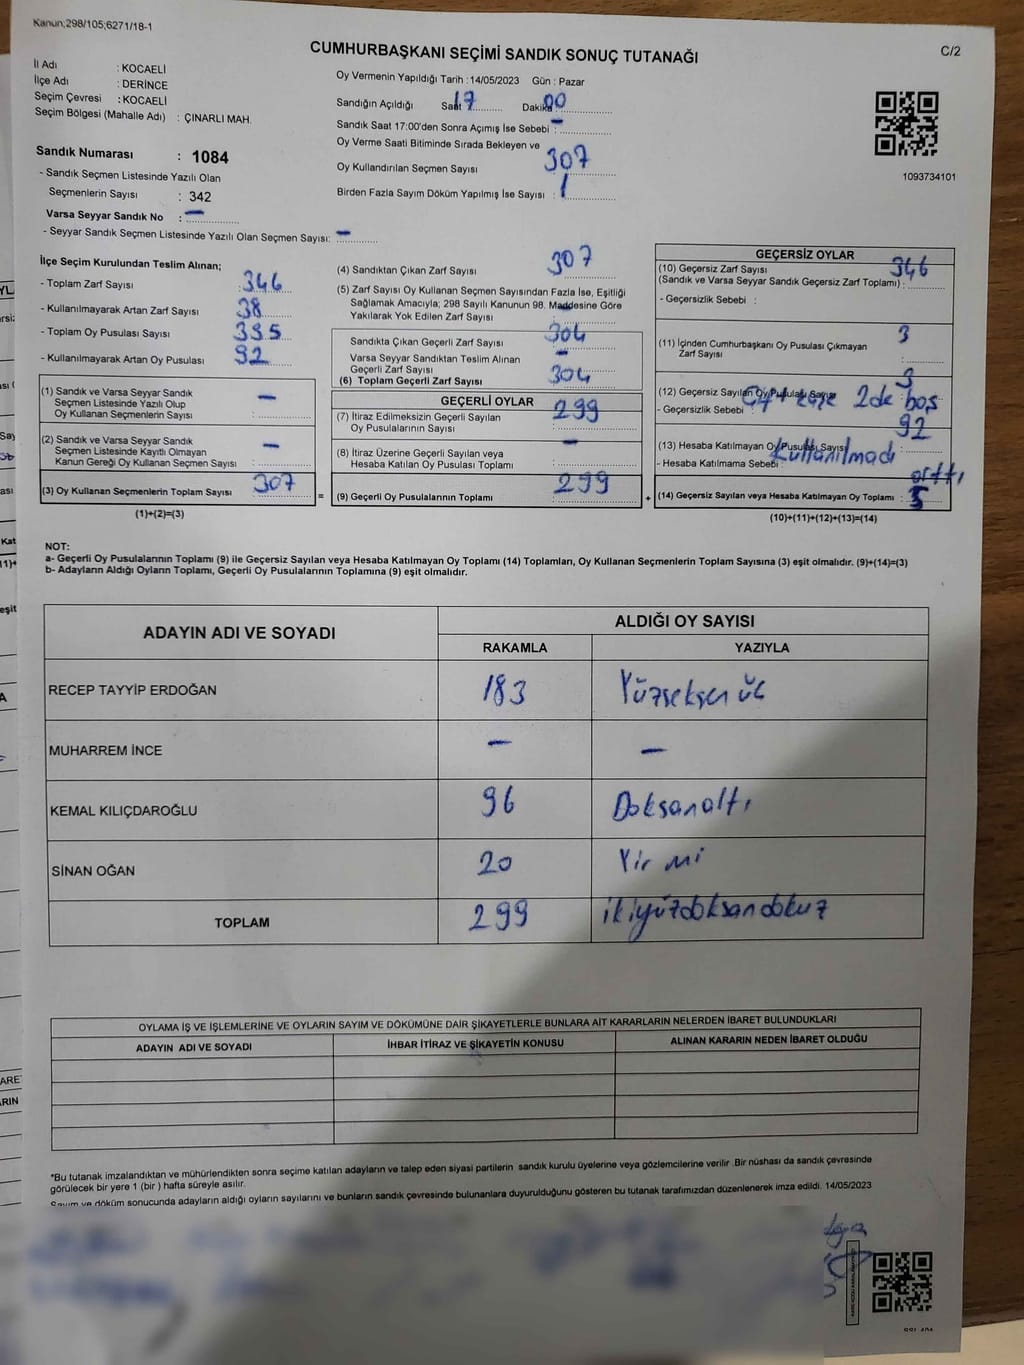 Kanun;298/105;6271/18-1
CUMHURBAŞKANI SEÇİMİ SANDIK SONUÇ TUTANAĞI
C/2
İl Adı : KOCAELİ
İlçe Adı : DERİNCE
Seçim Çevresi : KOCAELİ
Seçim Bölgesi (Mahalle Adı) : ÇINARLI MAH.
Sandık Numarası : 1084
- Sandık Seçmen Listesinde Yazılı Olan
Seçmenlerin Sayısı : 342
Varsa Seyyar Sandık No : —
- Seyyar Sandık Seçmen Listesinde Yazılı Olan Seçmen Sayısı: —
Oy Vermenin Yapıldığı Tarih : 14/05/2023 Gün : Pazar
Sandığın Açıldığı Saat 17 Dakika 00
Sandık Saat 17:00'den Sonra Açımış İse Sebebi : —
Oy Verme Saati Bitiminde Sırada Bekleyen ve
Oy Kullandırılan Seçmen Sayısı 307
Birden Fazla Sayım Döküm Yapılmış İse Sayısı : 1
1093734101
İlçe Seçim Kurulundan Teslim Alınan;
- Toplam Zarf Sayısı : 346
- Kullanılmayarak Artan Zarf Sayısı : 38
- Toplam Oy Pusulası Sayısı : 395
- Kullanılmayarak Artan Oy Pusulası : 92
(1) Sandık ve Varsa Seyyar Sandık
Seçmen Listesinde Yazılı Olup
Oy Kullanan Seçmenlerin Sayısı : —
(2) Sandık ve Varsa Seyyar Sandık
Seçmen Listesinde Kayıtlı Olmayan
Kanun Gereği Oy Kullanan Seçmen Sayısı : —
(3) Oy Kullanan Seçmenlerin Toplam Sayısı : 307
(1)+(2)=(3)
(4) Sandıktan Çıkan Zarf Sayısı : 307
(5) Zarf Sayısı Oy Kullanan Seçmen Sayısından Fazla İse, Eşitliği
Sağlamak Amacıyla; 298 Sayılı Kanunun 98. Maddesine Göre
Yakılarak Yok Edilen Zarf Sayısı : —
Sandıkta Çıkan Geçerli Zarf Sayısı : 304
Varsa Seyyar Sandıktan Teslim Alınan
Geçerli Zarf Sayısı : —
(6) Toplam Geçerli Zarf Sayısı : 304
GEÇERLİ OYLAR
(7) İtiraz Edilmeksizin Geçerli Sayılan
Oy Pusulalarının Sayısı : 299
(8) İtiraz Üzerine Geçerli Sayılan veya
Hesaba Katılan Oy Pusulası Toplamı : —
= (9) Geçerli Oy Pusulalarının Toplamı : 299
GEÇERSİZ OYLAR
(10) Geçersiz Zarf Sayısı 346
(Sandık ve Varsa Seyyar Sandık Geçersiz Zarf Toplamı) :
- Geçersizlik Sebebi :
(11) İçinden Cumhurbaşkanı Oy Pusulası Çıkmayan 3
Zarf Sayısı :
(12) Geçersiz Sayılan Oy Pusulası Sayısı 3
- Geçersizlik Sebebi 2 de boş
(13) Hesaba Katılmayan Oy Pusulası Sayısı 92
- Hesaba Katılmama Sebebi : Kullanılmadı arttı
+ (14) Geçersiz Sayılan veya Hesaba Katılmayan Oy Toplamı : 5
(10)+(11)+(12)+(13)=(14)
NOT:
a- Geçerli Oy Pusulalarının Toplamı (9) ile Geçersiz Sayılan veya Hesaba Katılmayan Oy Toplamı (14) Toplamları, Oy Kullanan Seçmenlerin Toplam Sayısına (3) eşit olmalıdır. (9)+(14)=(3)
b- Adayların Aldığı Oyların Toplamı, Geçerli Oy Pusulalarının Toplamına (9) eşit olmalıdır.
ADAYIN ADI VE SOYADI
ALDIĞI OY SAYISI
RAKAMLA YAZIYLA
RECEP TAYYİP ERDOĞAN 183 Yüzseksen üç
MUHARREM İNCE — —
KEMAL KILIÇDAROĞLU 96 Doksanaltı
SİNAN OĞAN 20 Yirmi
TOPLAM 299 ikiyüzdoksandokuz
OYLAMA İŞ VE İŞLEMLERİNE VE OYLARIN SAYIM VE DÖKÜMÜNE DAİR ŞİKAYETLERLE BUNLARA AİT KARARLARIN NELERDEN İBARET BULUNDUKLARI
ADAYIN ADI VE SOYADI İHBAR İTİRAZ VE ŞİKAYETİN KONUSU ALINAN KARARIN NEDEN İBARET OLDUĞU
*Bu tutanak imzalandıktan ve mühürlendikten sonra seçime katılan adayların ve talep eden siyasi partilerin sandık kurulu üyelerine veya gözlemcilerine verilir .Bir nüshası da sandık çevresinde
görülecek bir yere 1 (bir ) hafta süreyle asılır.
Sayım ve döküm sonucunda adayların aldığı oyların sayılarını ve bunların sandık çevresinde bulunanlara duyurulduğunu gösteren bu tutanak tarafımızdan düzenlenerek imza edildi. 14/05/2023